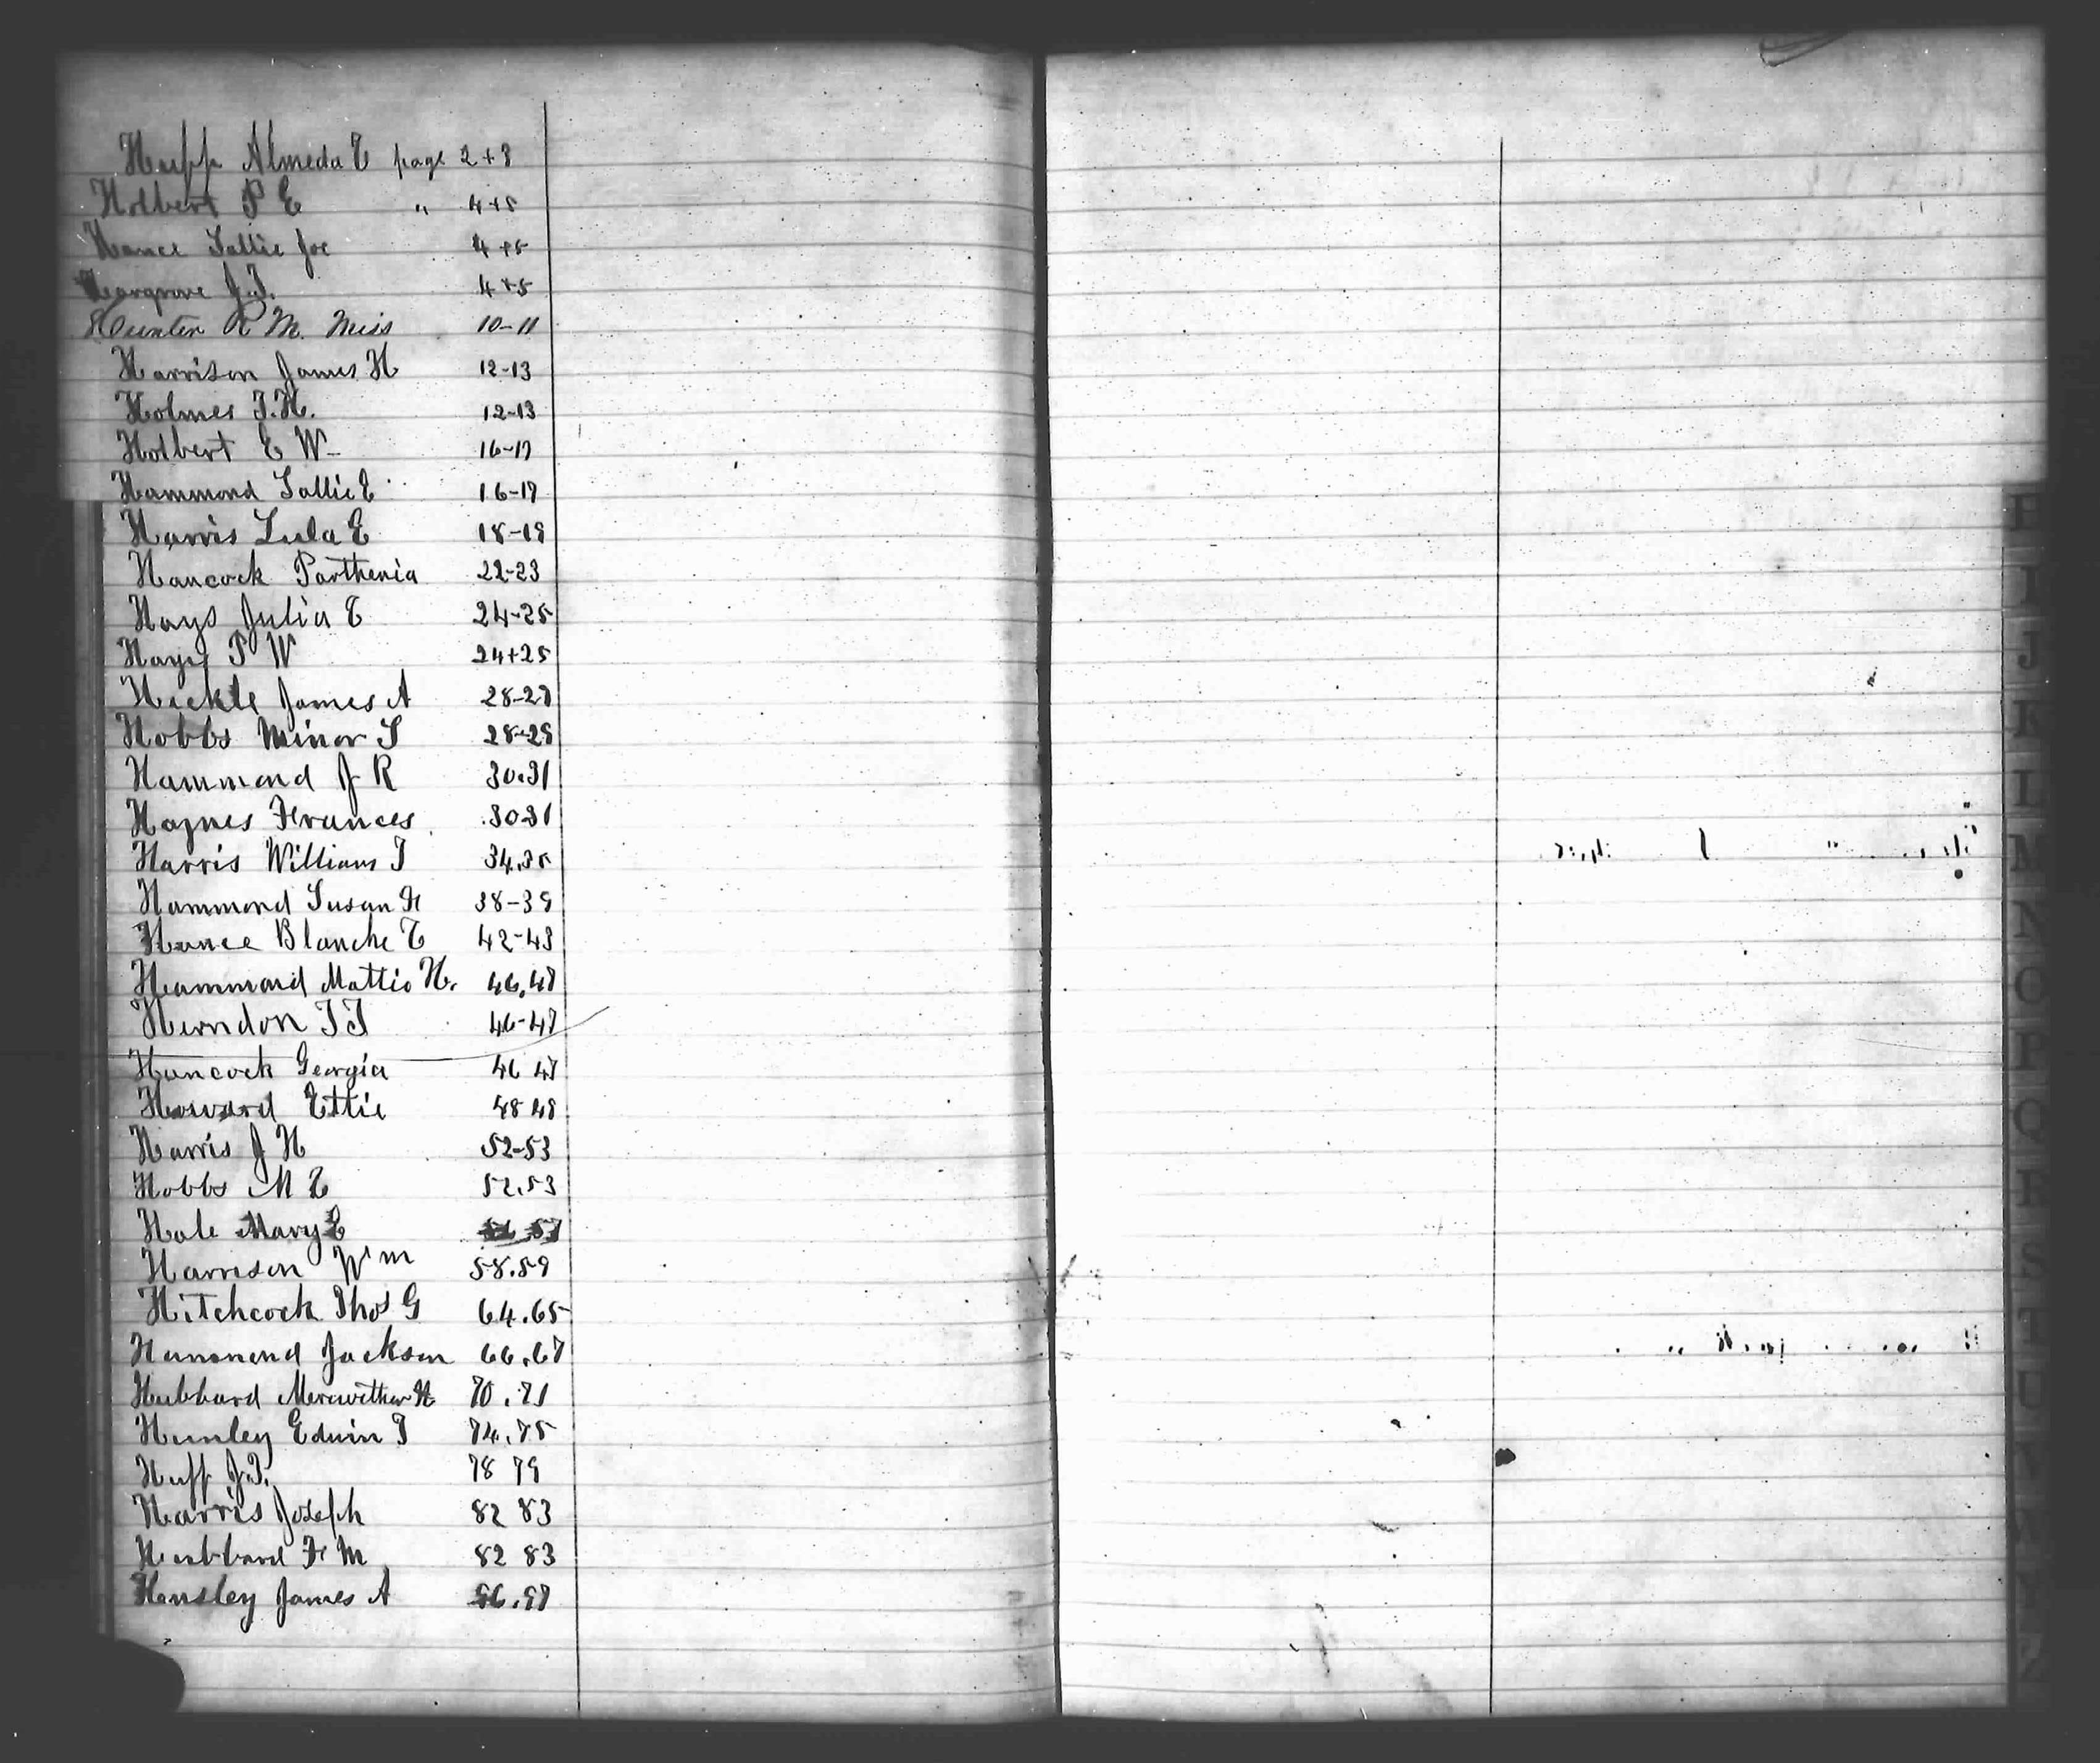 Hupp Almeda E page 2+3
Holbert P E " 4+5
Hance Sallie Joe 4+5
Hargrove J.T. 4+5
Hunter R M. Miss 10-11
Harrison James H 12-13
Holmes T.H. 12-13
Holbert E W- 16-17
Hammond Sallie E 16-17
Harris Lula E 18-19
Hancock Parthenia 22-23
Hays Julia E 24-25
Hays P W 24+25
Hackle James A 28-29
Hobbs Minor S 28-29
Hammond J R 30.31
Haynes Frances 30 31
Harris William T 34.35
Hammond Susan F 38-39
Hance Blanche E 42-43
Hammond Mattie H. 46.47
Herndon T T 46-47
Hancock Georgia 46 47
Howard Ettie 48 49
Harris J H 52-53
Hobbs M E 52.53
Hale Mary E 57
Harrison Wm 58.59
Hitchcock Thos G 64.65
Hammond Jackson 66.67
Hubbard Meriwether H 70.71
Hunley Edwin T 74.75
Huff J.T. 78 79
Harris Joseph 82 83
Hubbard F M 82 83
Hensley James A 96.97
H
I
J
K
L
M
N
O
P
Q
R
S
T
U
V